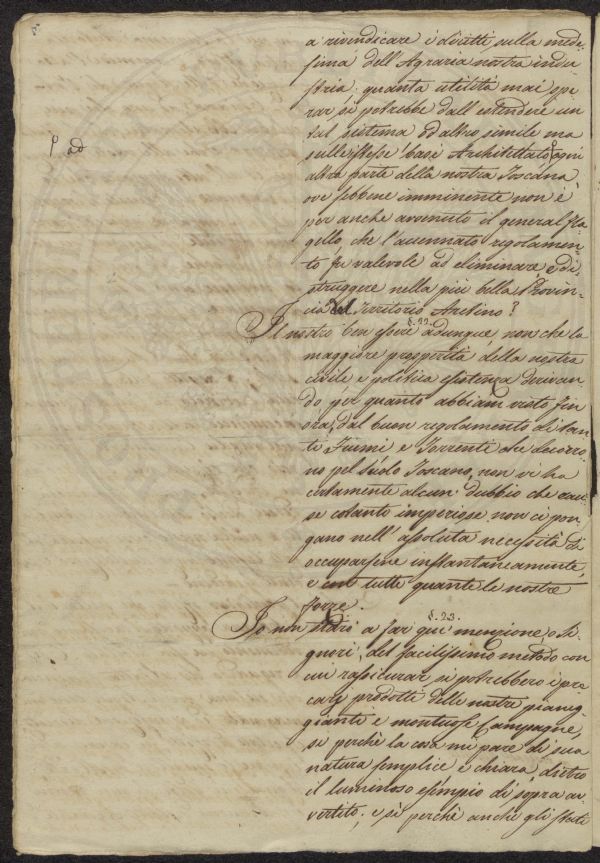 a rivindicare i diritti sulla mede-
sima dell'Agraria nostra indu-
stria: quanta utilità mai spe-
rar si potrebbe dall'estendere un
tal sistema ed altro simile ma
sulle istesse basi Architettato, ogni
altra parte della nostra Toscana
ove sebbene imminente non è
per anche avvenuto il general fla-
gello, che l'accennato regolamen-
to fu valevole ad eliminare, e di-
struggere nella più bella Provin-
cia del Territorio Aretino?
P ad
§. 22.
Il nostro ben essere adunque non che la
maggiore prosperità della nostra
civile e politica esistenza derivan-
do per quanto abbiam visto fin
óra, dal buon regolamento di tan-
ti Fiumi e Torrenti che scorro-
no pel suolo Toscano, non vi ha
certamente alcun dubbio che cau-
se cotanto imperiose non ci pon-
gano nell'assoluta necessità di
occuparsene instantaneamente,
e con tutte quante le nostre
forze.
§. 23.
Io non starò a far quì menzione o Si-
gnori, del facilissimo metodo con
cui rassicurar si potrebbero i pre-
cari prodotti delle nostre pianeg-
gianti e montuose Campagne,
sì perchè la cosa mi pare di sua
natura semplice e chiara, dietro
il luminoso esempio di sopra av-
vertito; e sì perchè anche gli stati